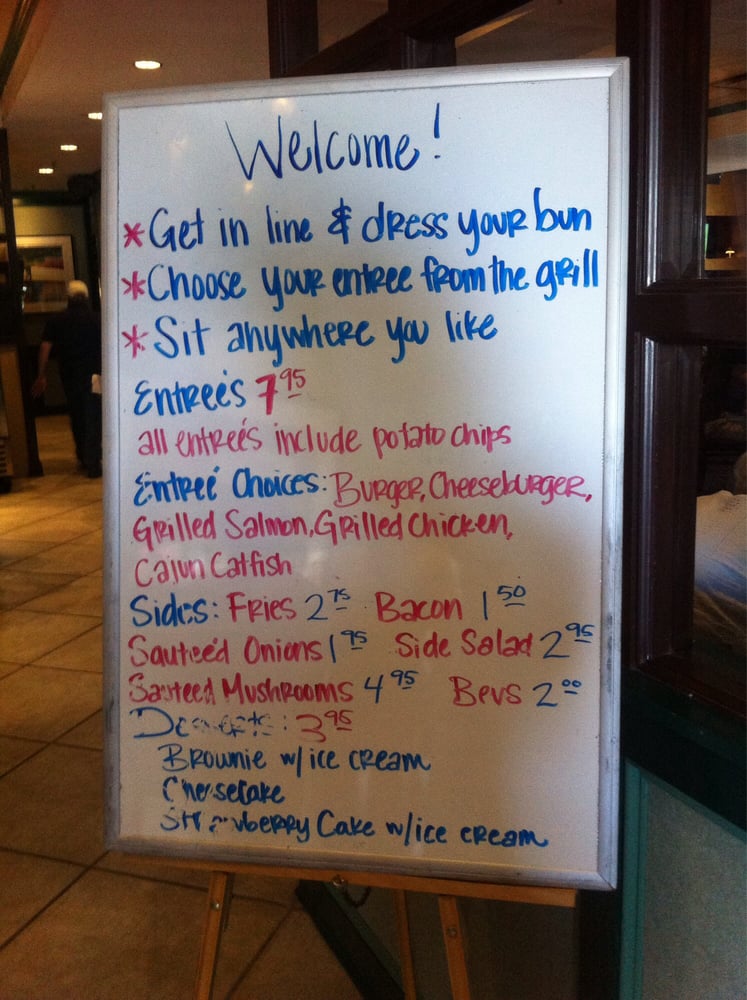 Welcome!
* Get in line & dress your bun
* Choose your entree from the grill
* Sit anywhere you like
Entreés 7 95
all entreés include potato chips
Entreé Choices: Burger, Cheeseburger,
Grilled Salmon, Grilled Chicken,
Cajun Catfish
Sides: Fries 2 75 Bacon 1 50
Sauteéd Onions 1 95 Side Salad 2 95
Sauteed Mushrooms 4 95 Bevs 2 00
Desserts: 3 95
Brownie w/ ice cream
Cheesecake
Strawberry Cake w/ ice cream